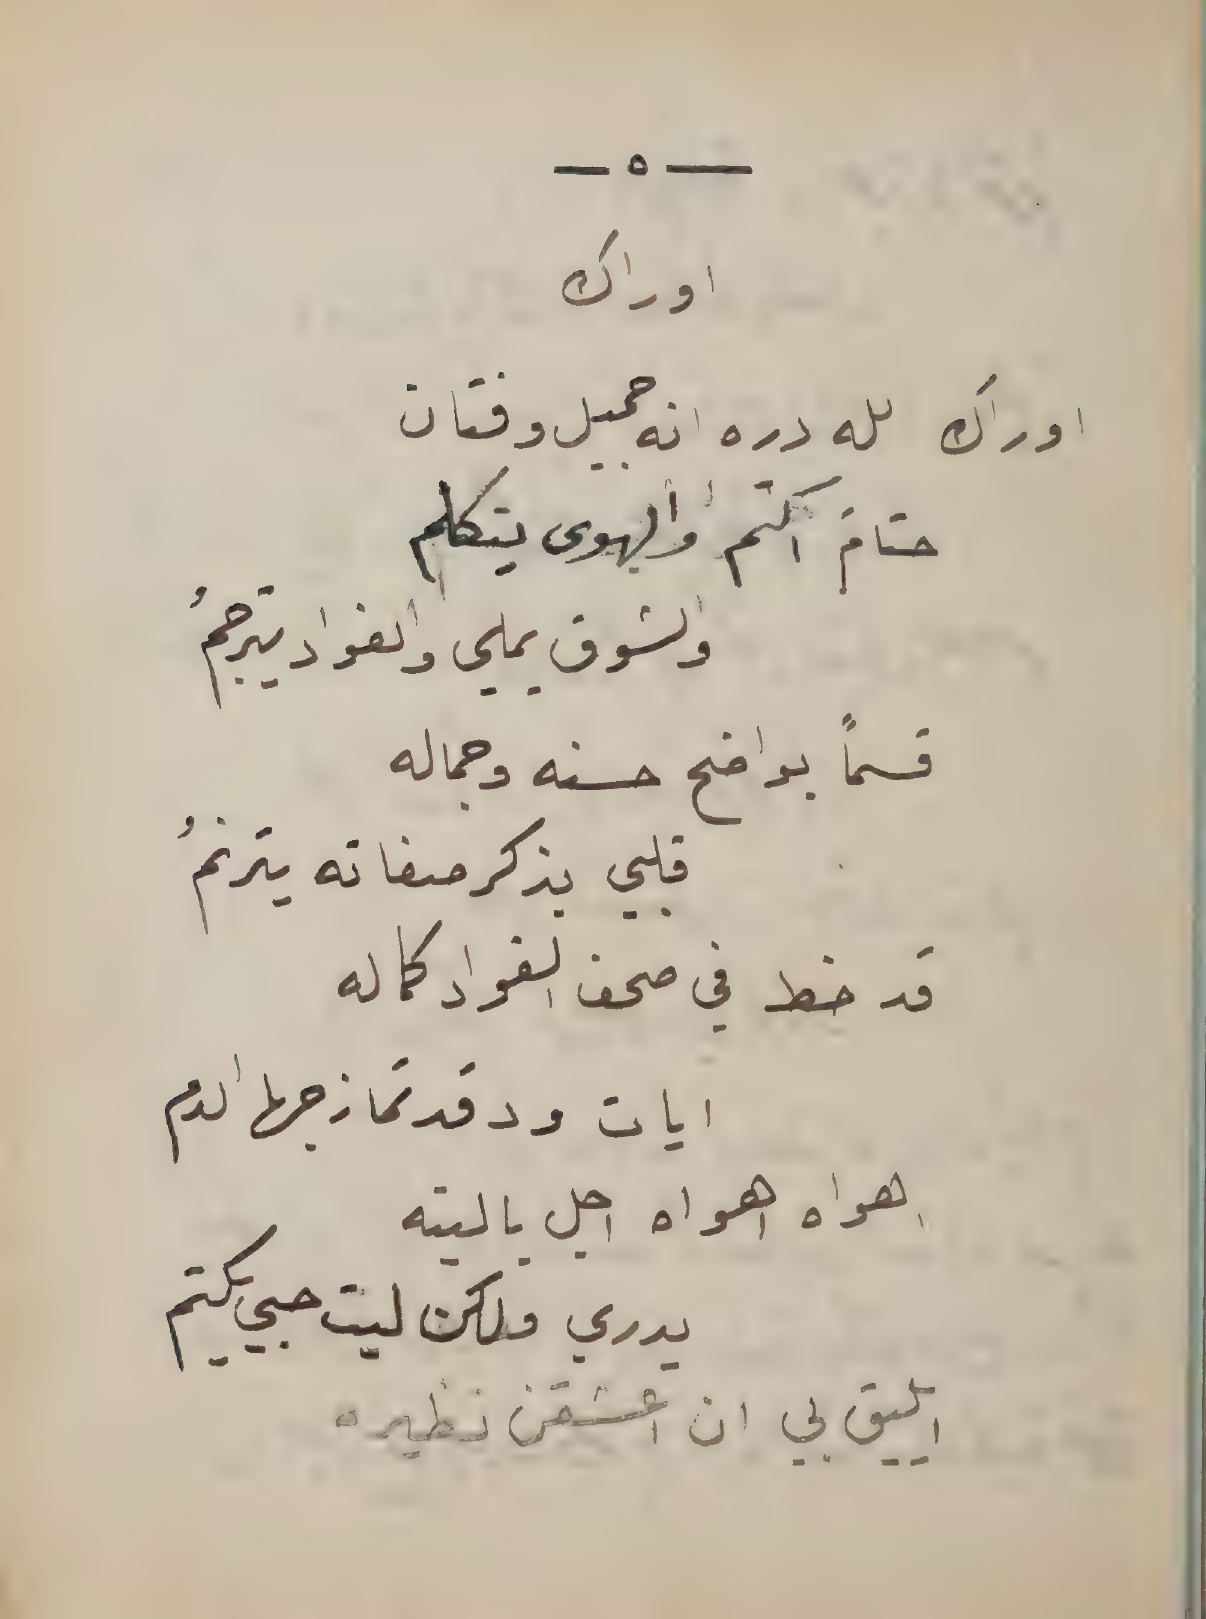 — ٥ —
اوراك
اوراك لله دره انه جميل وفتان
حتام اكتم والهوى يتكلم
والشوق يملي والفواد يترجمُ
قسماً بواضح حسنه وجماله
قلبي بذكر صفاته يترنمُ
قد خط في صحف الفواد كماله
ايات ود قد تمازجها الدم
اهواه اهواه اجل ياليته
يدري ولكن ليت حبي يكتم
ايليق بي ان اعشقن نظيره